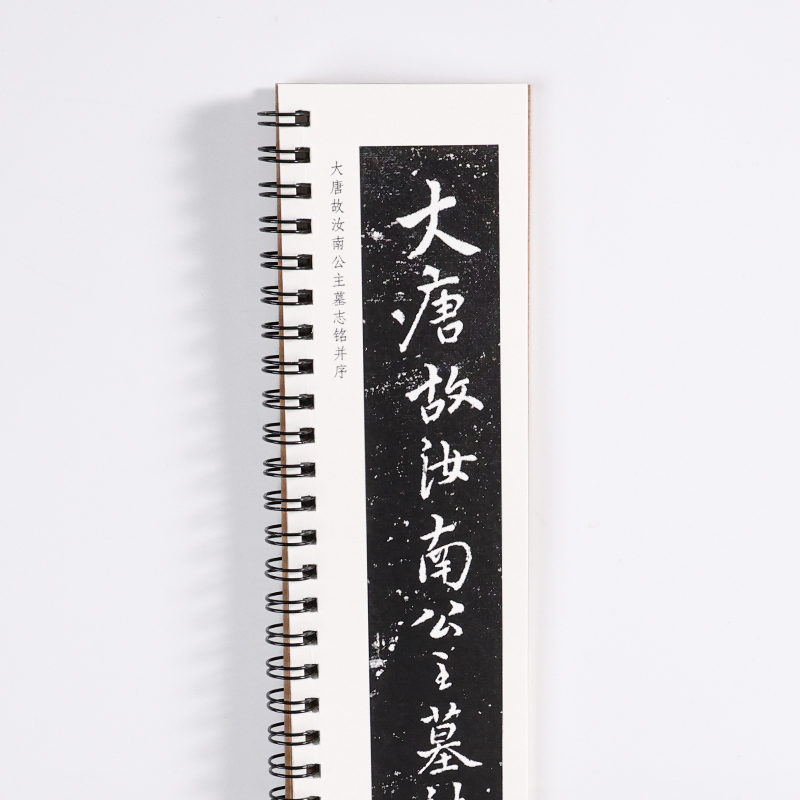 大唐故汝南公主墓志铭并序
大唐故汝南公主墓